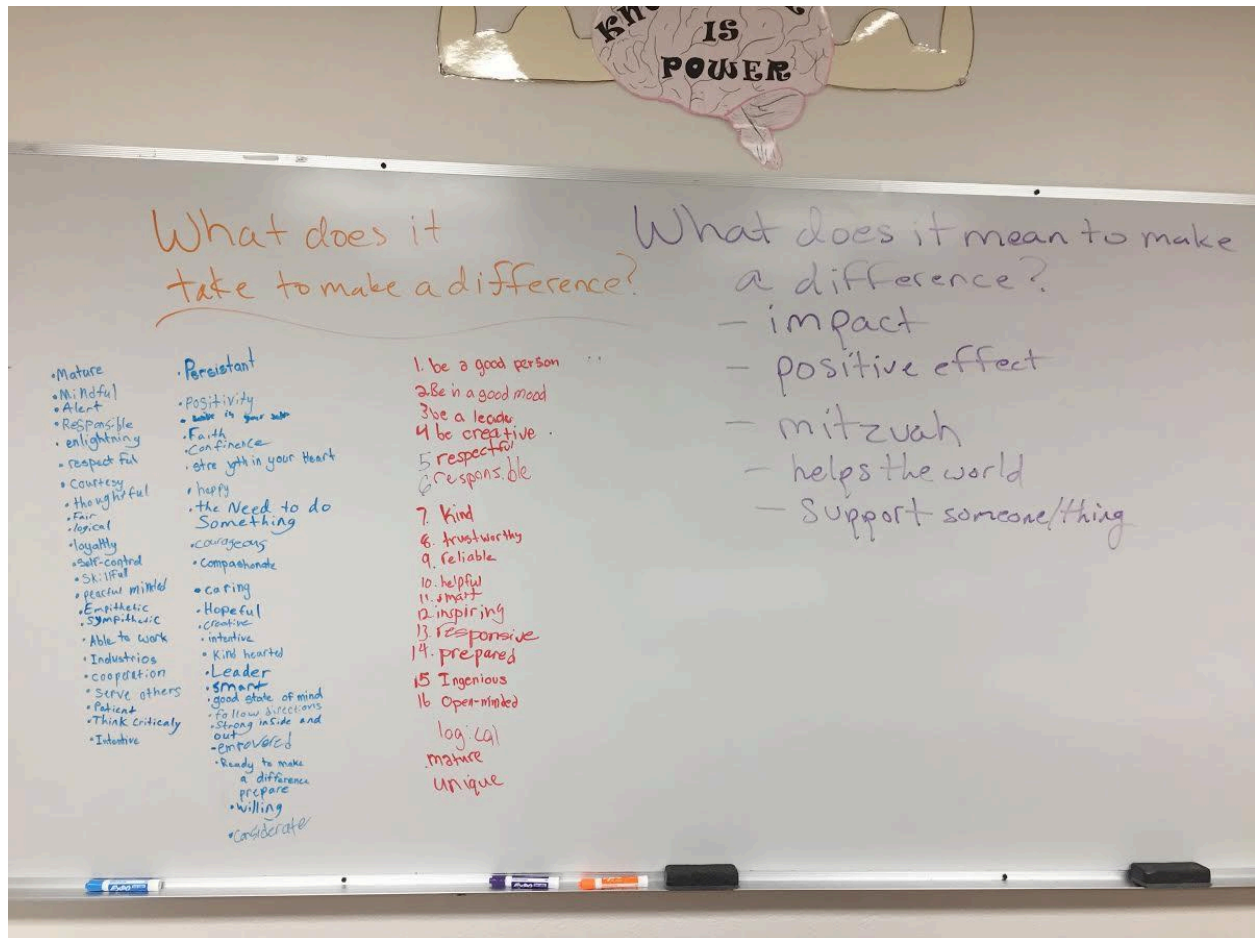 IS
POWER
What does it
take to make a difference?
•Mature
•Mindful
•Alert
•Responsible
•enlightning
•respectful
•Courtesy
•thoughtful
•Fair
•logical
•loyaltly
•Self-control
•Skillful
•peacful minded
•Empithetic
•Sympithetic
•Able to work
•Industrios
•cooperation
•Serve others
•Patient
•Think criticaly
•Intentive
•Persistant
•Positivity
in your
•Faith
•Confinence
•strength in your Heart
•happy
•the Need to do
Something
•courageous
•Compashonate
•caring
•Hopeful
•creative
•intentive
•Kind hearted
•Leader
•smart
•good state of mind
•follow directions
•Strong inside and
out
-empowered
•Ready to make
a difference
prepare
•willing
•considerate
1. be a good person
2. Be in a good mood
3 be a leader
4 be creative
5 respectful
6 responsible
7. Kind
8. trustworthy
9. reliable
10. helpful
11. smart
12 inspiring
13. responsive
14. prepared
15 Ingenious
16 Open-minded
logical
.mature
unique
What does it mean to make
a difference?
- impact
- positive effect
- mitzvah
- helps the world
- Support someone/thing